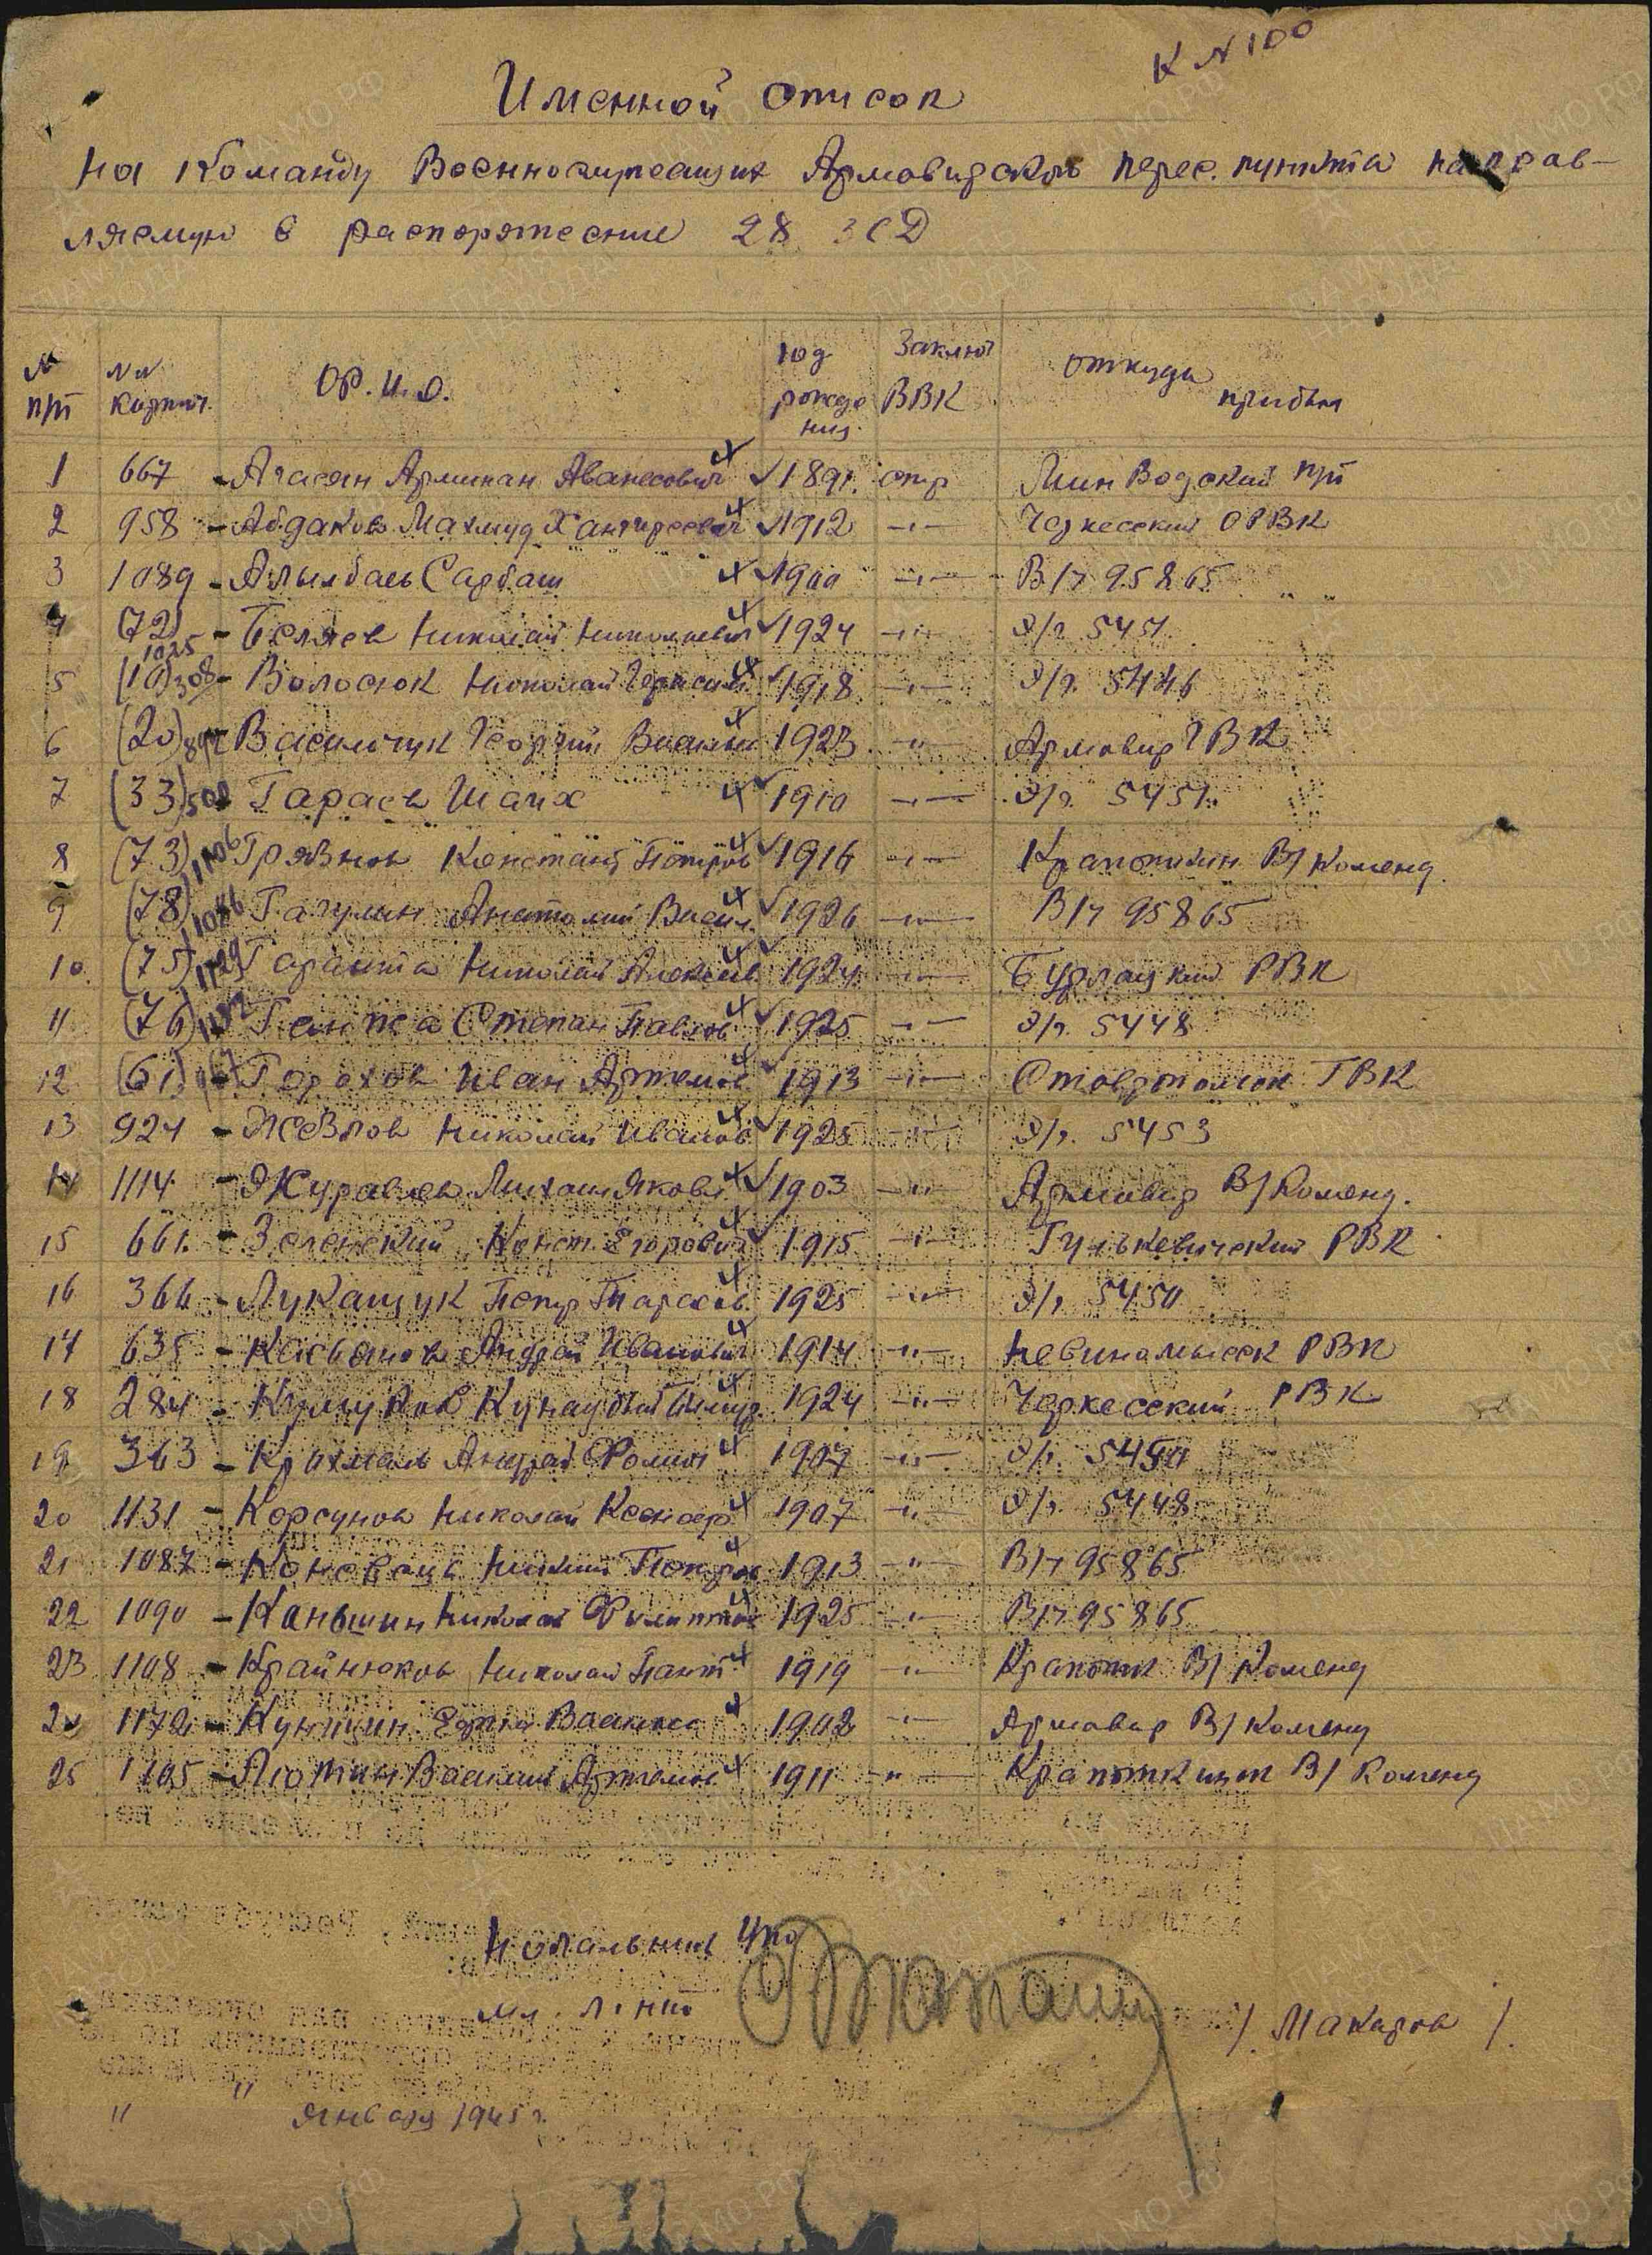 К № 100
Именной список
на команду военнослужащих Армавирского перес. пункта направ-
ляемую в распоряжение 28 ЗСД
№ п/п №№ карточ. Ф.И.О. год рождения Заключ ВВК откуда прибыл
1 667 - Агасян Аванесович 1891. стр Мин Водский п/п
2 958 - Абдаков Махмуд 1912 -"- Черкесский ОРВК
3 1089 - Алымбаев Сарбаш 1900 -"- В/ч 95865
4 (72) 1025 - Беляев Николай Николаевич 1924 -"- Э/г. 5451
5 (10) 308 - Волосюк Николай Герасим 1918 -"- Э/г. 5446
6 (20) - Васильчук Георгий Васильев 1923 -"- Армавир ГВК
7 (33) 500 - Гараев Шаих 1910 -"- Э/г. 5451.
8 (73) 1106 Грязнов Констант Петров 1916 -"- Крапоткин В/Коменд
9 (78) 1086 Гагулин Анатолий Васил. 1926 -"- В/ч 95865
10. (75) 1129 Гаранта Николай Алексеев 1924 -"- РВК
11 (76) Ганжа Степан Павлов 1925 -"- Э/г. 5448
12 (61) 967 - Горохов Иван Артемов 1913 -"- Ставропольск ГВК
13 924 - Жезлов Николай Иванов 1925 -"- Э/г. 5453
14 1114 - Журавлев Михаил Яковл 1903 -"- Армавир В/Коменд.
15 661. - Зеленский Конст. Егорович 1915 -"- Гулькевичский РВК
16 366 - Лукащук Петр Тарасов. 1925 -"- Э/г. 5450
17 635 - Касьянов Андрей Иванович 1914 -"- Невиномысск РВК
18 284 - Кумуков 1924 -"- Черкесский РВК
19 363 - Крахмаль Андрей Фомич 1907 -"- Э/г. 5450
20 1131 - Корсунов Николай 1907 -"- Э/г. 5448
21 1087 - Коновец 1913 -"- В/ч 95865
22 1090 - Каньшин Николай Филиппов 1925 -"- В/ч 95865
23 1108 - Крайнюков Николай Пант. 1919 -"- Крапотк В/Коменд
24 1172 - Васильев 1902 -"- Армавир В/Коменд
25 1105 - Лютин Василий Артемов 1911 -"- Крапоткинск В/Коменд
Начальник
мл. л-нт /Макаров/.
" " января 1945 г.
ПАМЯТЬ НАРОДА
ПАМО.РФ